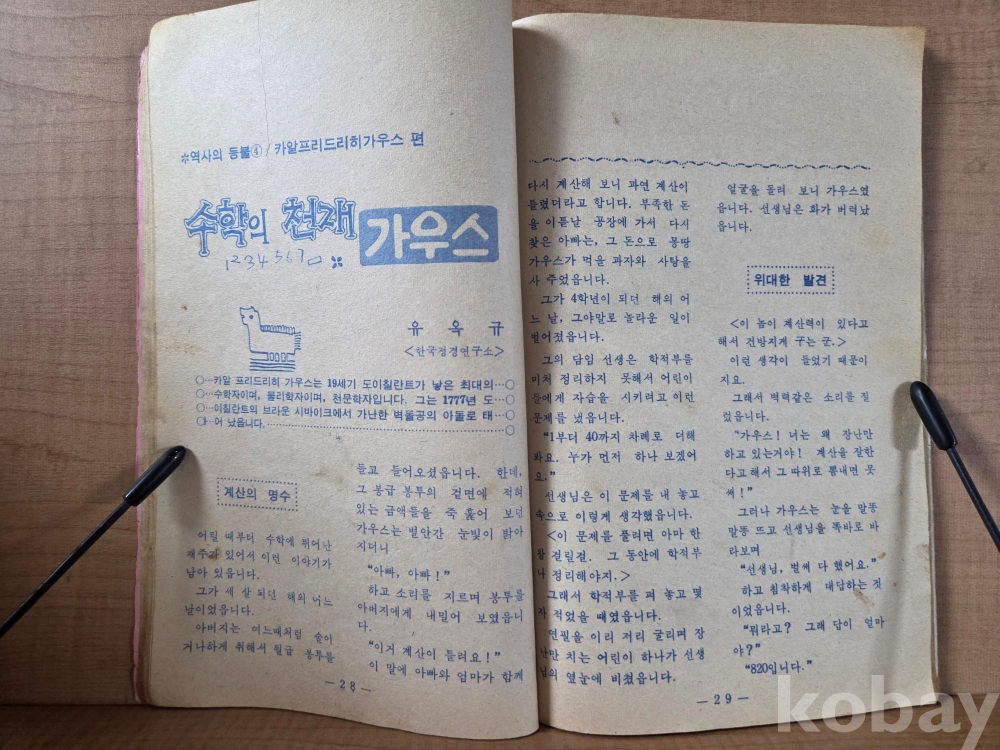 *역사의 등불④/카알프리드리히가우스 편
수학의 천재 가우스
1234567□
유옥규
<한국정경연구소>
○…카알 프리드리히 가우스는 19세기 도이칠란트가 낳은 최대의…○
○…수학자이며, 물리학자이며, 천문학자입니다. 그는 1777년 도…○
○…이칠란트의 브라운 시바이크에서 가난한 벽돌공의 아돌로 태…○
어 났읍니다.…○
계산의 명수
어릴 때부터 수학에 뛰어난
재주가 있어서 이런 이야기가
남아 있읍니다.
그가 세 살 되던 해의 어느
날이었읍니다.
아버지는 여느때처럼 술이
거나하게 취해서 월급 봉투를
들고 들어오셨읍니다. 한데,
그 봉급 봉투의 겉면에 적혀
있는 금액들을 죽 훑어 보던
가우스는 별안간 눈빛이 밝아
지더니
"아빠, 아빠!"
하고 소리를 지르며 봉투를
아버지에게 내밀어 보였읍니
다.
"이거 계산이 틀려요!"
이 말에 아빠와 엄마가 함께
－28－
다시 계산해 보니 과연 계산이
틀렸더라고 합니다. 부족한 돈
을 이튿날 공장에 가서 다시
찾은 아빠는, 그 돈으로 몽땅
가우스가 먹을 과자와 사탕을
사 주었읍니다.
그가 4학년이 되던 해의 어
느 날, 그야말로 놀라운 일이
벌어졌읍니다.
그의 담임 선생은 학적부를
미처 정리하지 못해서 어린이
들에게 자습을 시키려고 이런
문제를 냈읍니다.
"1부터 40까지 차례로 더해
봐요. 누가 먼저 하나 보겠어
요."
선생님은 이 문제를 내 놓고
속으로 이렇게 생각했읍니다.
<이 문제를 풀려면 아마 한
참 걸릴걸. 그 동안에 학적부
나 정리해야지.>
그래서 학적부를 펴 놓고 몇
자 적었을 때였읍니다.
연필을 이리 저리 굴리며 장
난만 치는 어린이 하나가 선생
님의 옆눈에 비쳤읍니다.
얼굴을 돌려 보니 가우스였
읍니다. 선생님은 화가 버럭났
읍니다.
위대한 발견
<이 놈이 계산력이 있다고
해서 건방지게 구는 군.>
이런 생각이 들었기 때문이
지요.
그래서 벽력같은 소리를 질
렀읍니다.
"가우스! 너는 왜 장난만
하고 있는거야! 계산을 잘한
다고 해서 그 따위로 뽐내면 못
써!"
그러나 가우스는 눈을 말똥
말똥 뜨고 선생님을 똑바로 바
라보며
"선생님, 벌써 다 했어요."
하고 침착하게 대답하는 것
이었읍니다.
"뭐라고? 그래 답이 얼마
야?"
"820입니다."
－29－
kobay